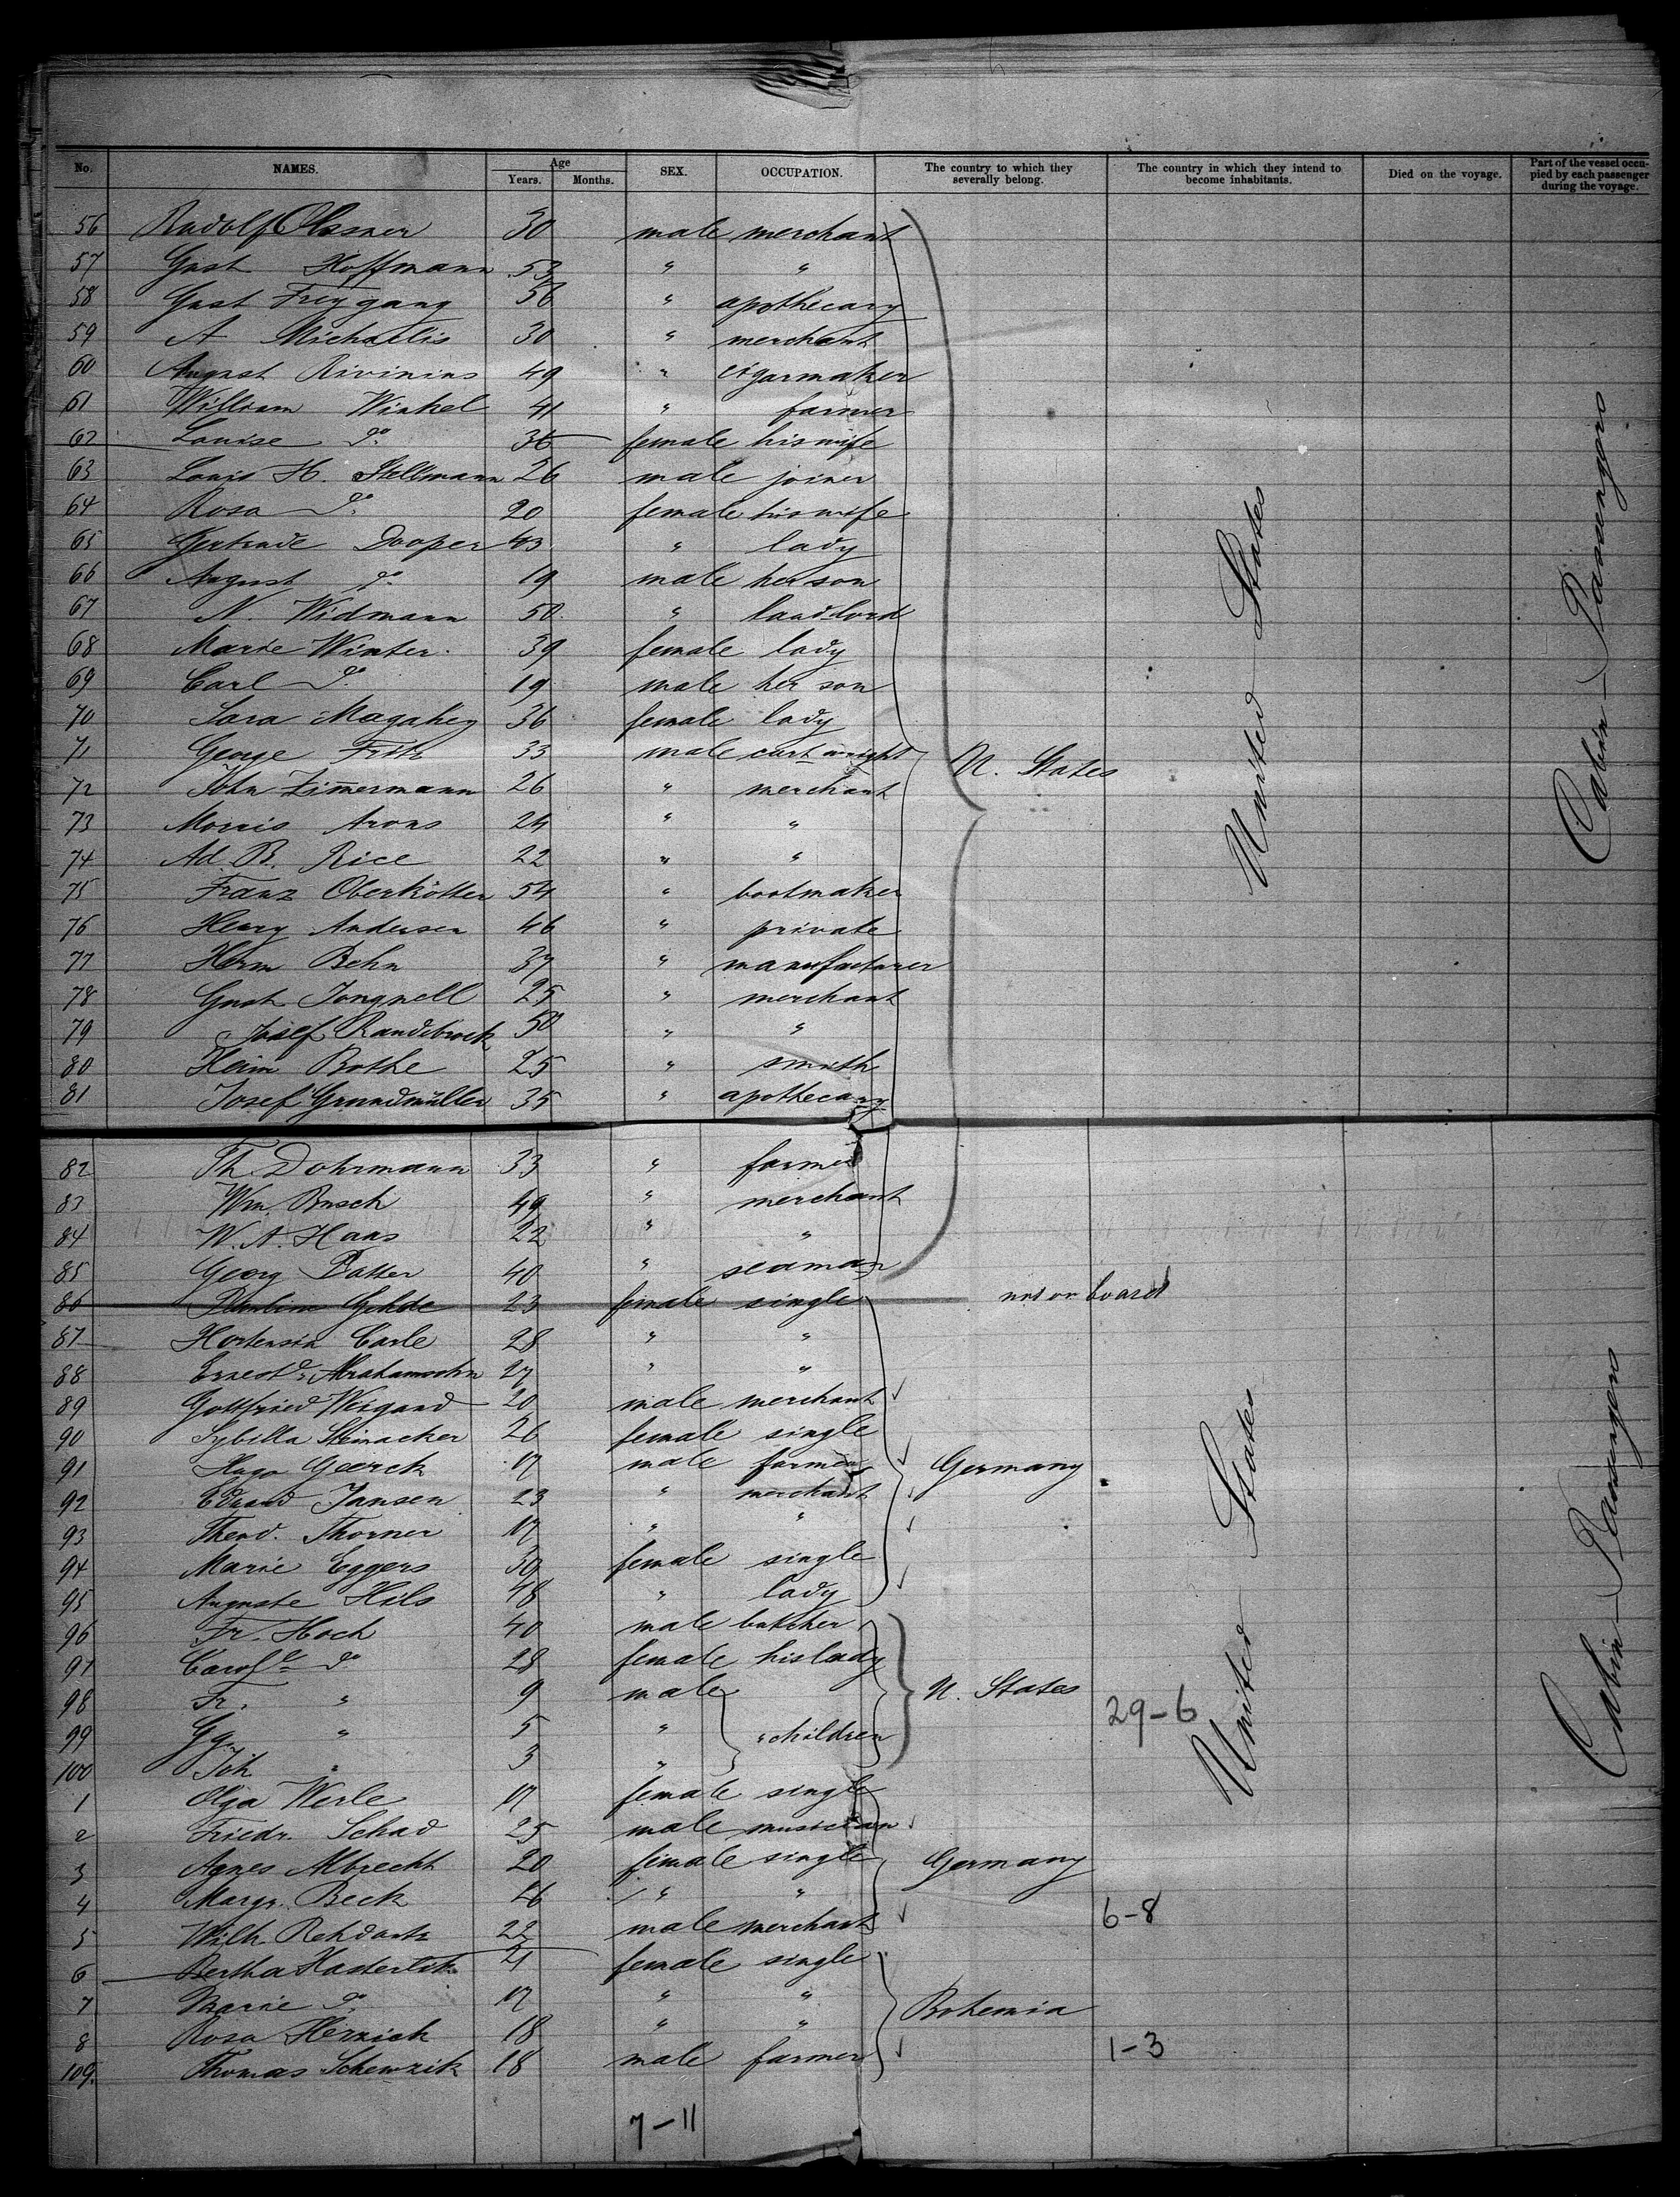 No. NAMES. Age Years. Months. SEX. OCCUPATION. The country to which they severally belong. The country in which they intend to become inhabitants. Died on the voyage. Part of the vessel occupied by each passenger during the voyage.
56 Rudolf 30 male merchant
57 Gust Hoffmann 53 " "
58 Gust Freygang 56 " apothecary
59 A Michaelis 30 " merchant
60 August Rivinius 49 " cigarmaker
61 William Winkel 41 " farmer
62 Louise do 36 female his wife
63 Louis H. Stellmann 26 male joiner
64 Rosa do 20 female his wife
65 Gertrude Dooper 43 " lady
66 August do 19 male her son
67 N. Widmann 50 " landlord
68 Marie Winter 39 female lady
69 Carl do 19 male her son
70 Sara Magahey 36 female lady
71 George Fritz 33 male cartwright
72 John Zimmermann 26 " merchant
U. States
United States
Cabin Passengers
73 Morris Arons 24 " "
74 Ad. B. Rice 22 " "
75 Franz Oberkötter 54 " bootmaker
76 Henry Andersen 46 " private
77 Herm Behn 37 " manufacturer
78 Gust Jongnell 25 " merchant
79 Josef Randebrock 50 " "
80 Heinr Bothe 25 " smith
81 Josef Grundmüller 35 " apothecary
82 Th. Dohrmann 33 " farmer
83 Wm. Busch 49 " merchant
84 W. A. Haas 22 " "
85 Georg 40 " seaman
86 23 female single not on board
87 Hortensia Carle 28 " "
88 Ernestde Abrahamsohn 27 " "
89 Gottfried Weigand 20 male merchant
90 Sybilla Steinacker 26 female single
91 Hugo Geerck 17 male farmer Germany
92 Eduard Jansen 23 " merchant
93 Theod. Thorner 17 " "
94 Marie Eggers 30 female single
95 Auguste Hils 48 " lady
United States
Cabin Passengers
96 Fr. Hoch 40 male butcher
97 Carole do 28 female his lady
98 Fr. " 9 male U. States
29-6
99 Gg. " 5 " children
100 Joh " 3 "
1 Olga Werle 17 female single
2 Friedr. Schad 25 male musician
3 Agnes Albrecht 20 female single Germany
4 Margr. Beck 26 " "
6-8
5 Wilh. Rehdantz 22 male merchant
6 Bertha Hasterlik 21 female single
7 Marie do 17 " " Bohemia
8 Rosa 18 " "
1-3
109. Thomas 18 male farmer
7-11